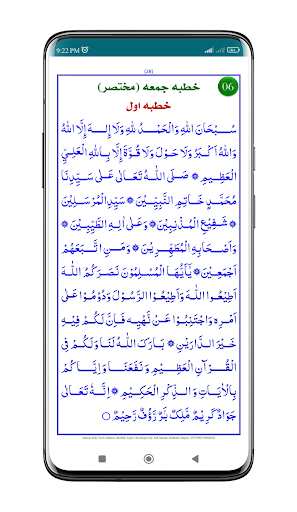 9:22 PM
(28)
06
خطبه جمعه (مختصر)
خطبه اول
سُبْحَانَ اللهِ وَالْحَمْدُ لِلّٰهِ وَلَا اِلٰهَ اِلَّا اللهُ
وَاللهُ اَكْبَرُ وَلَا حَوْلَ وَلَا قُوَّةَ اِلَّا بِاللهِ الْعَلِيِّ
الْعَظِيْمِ ۞ صَلَّى اللهُ تَعَالٰى عَلٰى سَيِّدِنَا
مُحَمَّدٍ خَاتِمِ النَّبِيِّيْنَ ۞ وَسَيِّدِ الْمُرْسَلِيْنَ
۞ شَفِيْعِ الْمُذْنِبِيْنَ ۞ وَعَلٰى اٰلِهِ الطَّيِّبِيْنَ ۞
وَاَصْحَابِهِ الْمُطَهَّرِيْنَ ۞ وَمَنِ اتَّبَعَهُمْ
اَجْمَعِيْنَ ۞ يٰٓاَيُّهَا الْمُسْلِمُوْنَ نَصَرَكُمُ اللهُ
اَطِيْعُوا اللهَ وَاَطِيْعُوا الرَّسُوْلَ وَدُوْمُوْا عَلٰى
اَمْرِهٖ وَاجْتَنِبُوْا عَنْ نَّهْيِهٖ فَاِنَّ لَكُمْ فِيْهِ
خَيْرَ الدَّارَيْنِ ۞ بَارَكَ اللهُ لَنَا وَلَكُمْ فِي
الْقُرْاٰنِ الْعَظِيْمِ وَنَفَعَنَا وَاِيَّاكُمْ
بِالْاٰيَاتِ وَالذِّكْرِ الْحَكِيْمِ ۞ اِنَّهٗ تَعَالٰى
جَوَادٌ كَرِيْمٌ مَّلِكٌ بَرٌّ رَّؤُفٌ رَّحِيْمٌ ○